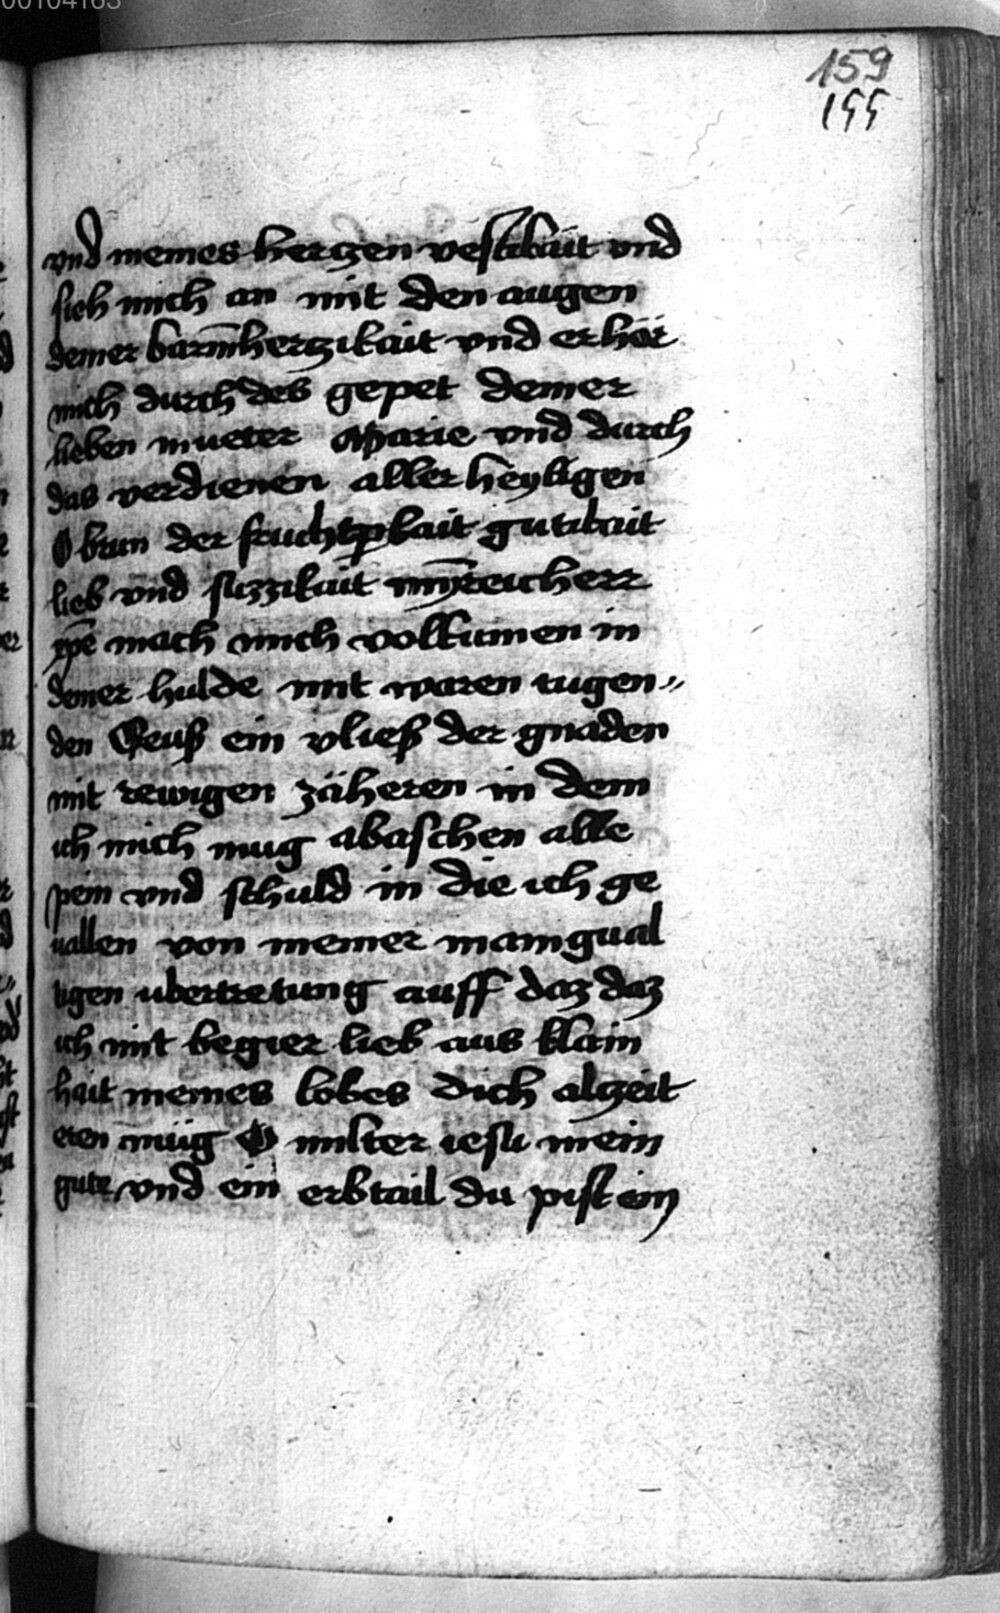 00104163
159
155
vnd meines hertzen vestikait vnd
sich mich an mit den augen
deiner barm̄hertzikait vnd erhör
mich durch des gepet deiner
lieben mueter Marie vnd durch
das verdienen aller heyligen
O brun der fruchtpkait gutikait
lieb vnd süzzikait reicherr
xp̄e mach mich volkumen in
deiner hulde mit waren tugen〃
den Geuß ein vließ der gnaden
mit rewigen zäheren in dem
ich mich mug abaschen alle
pein vnd schuld in die ich ge
uallen von meiner manigual
tigen ubertretung auff daz daz
ich mit begier lieb aus klain
hait meines lobes dich alzeit
eren müg O milter iesu mein
gute vnd ein erbtail du pist ein